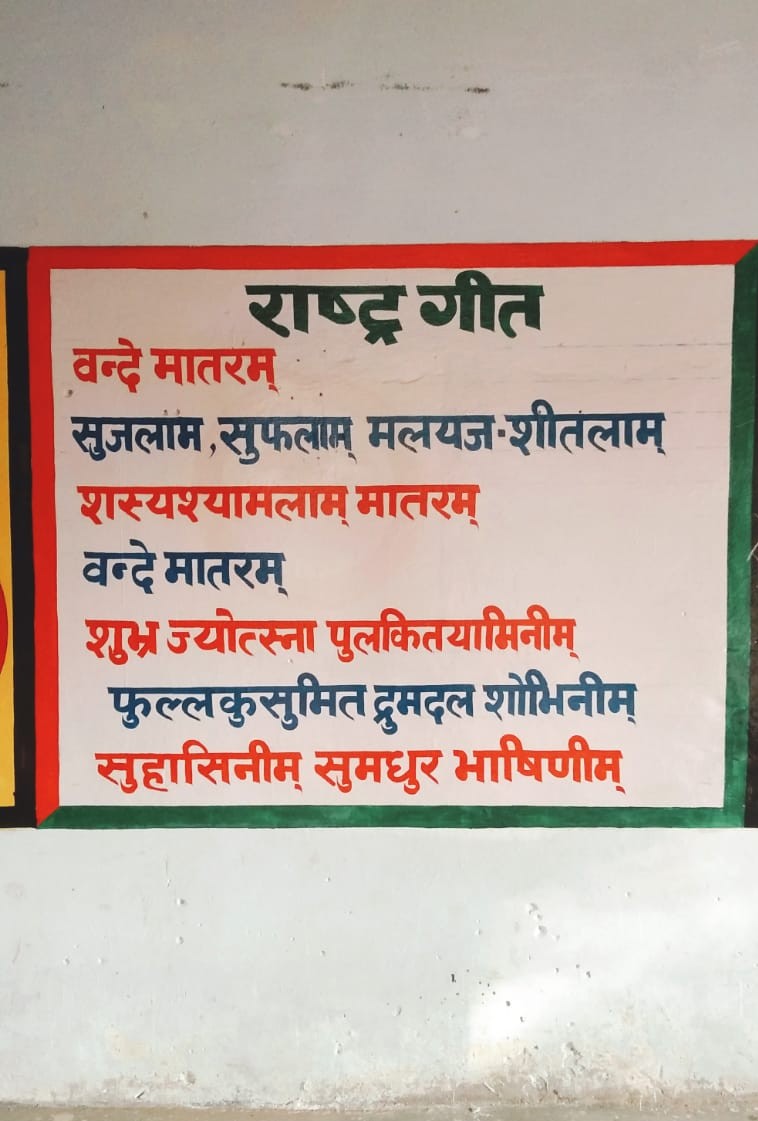 राष्ट्र गीत
वन्दे मातरम्
सुजलाम ,सुफलाम् मलयज-शीतलाम्
शस्यश्यामलाम् मातरम्
वन्दे मातरम्
शुभ्र ज्योत्स्ना पुलकितयामिनीम्
फुल्लकुसुमित द्रुमदल शोभिनीम्
सुहासिनीम् सुमधुर भाषिणीम्